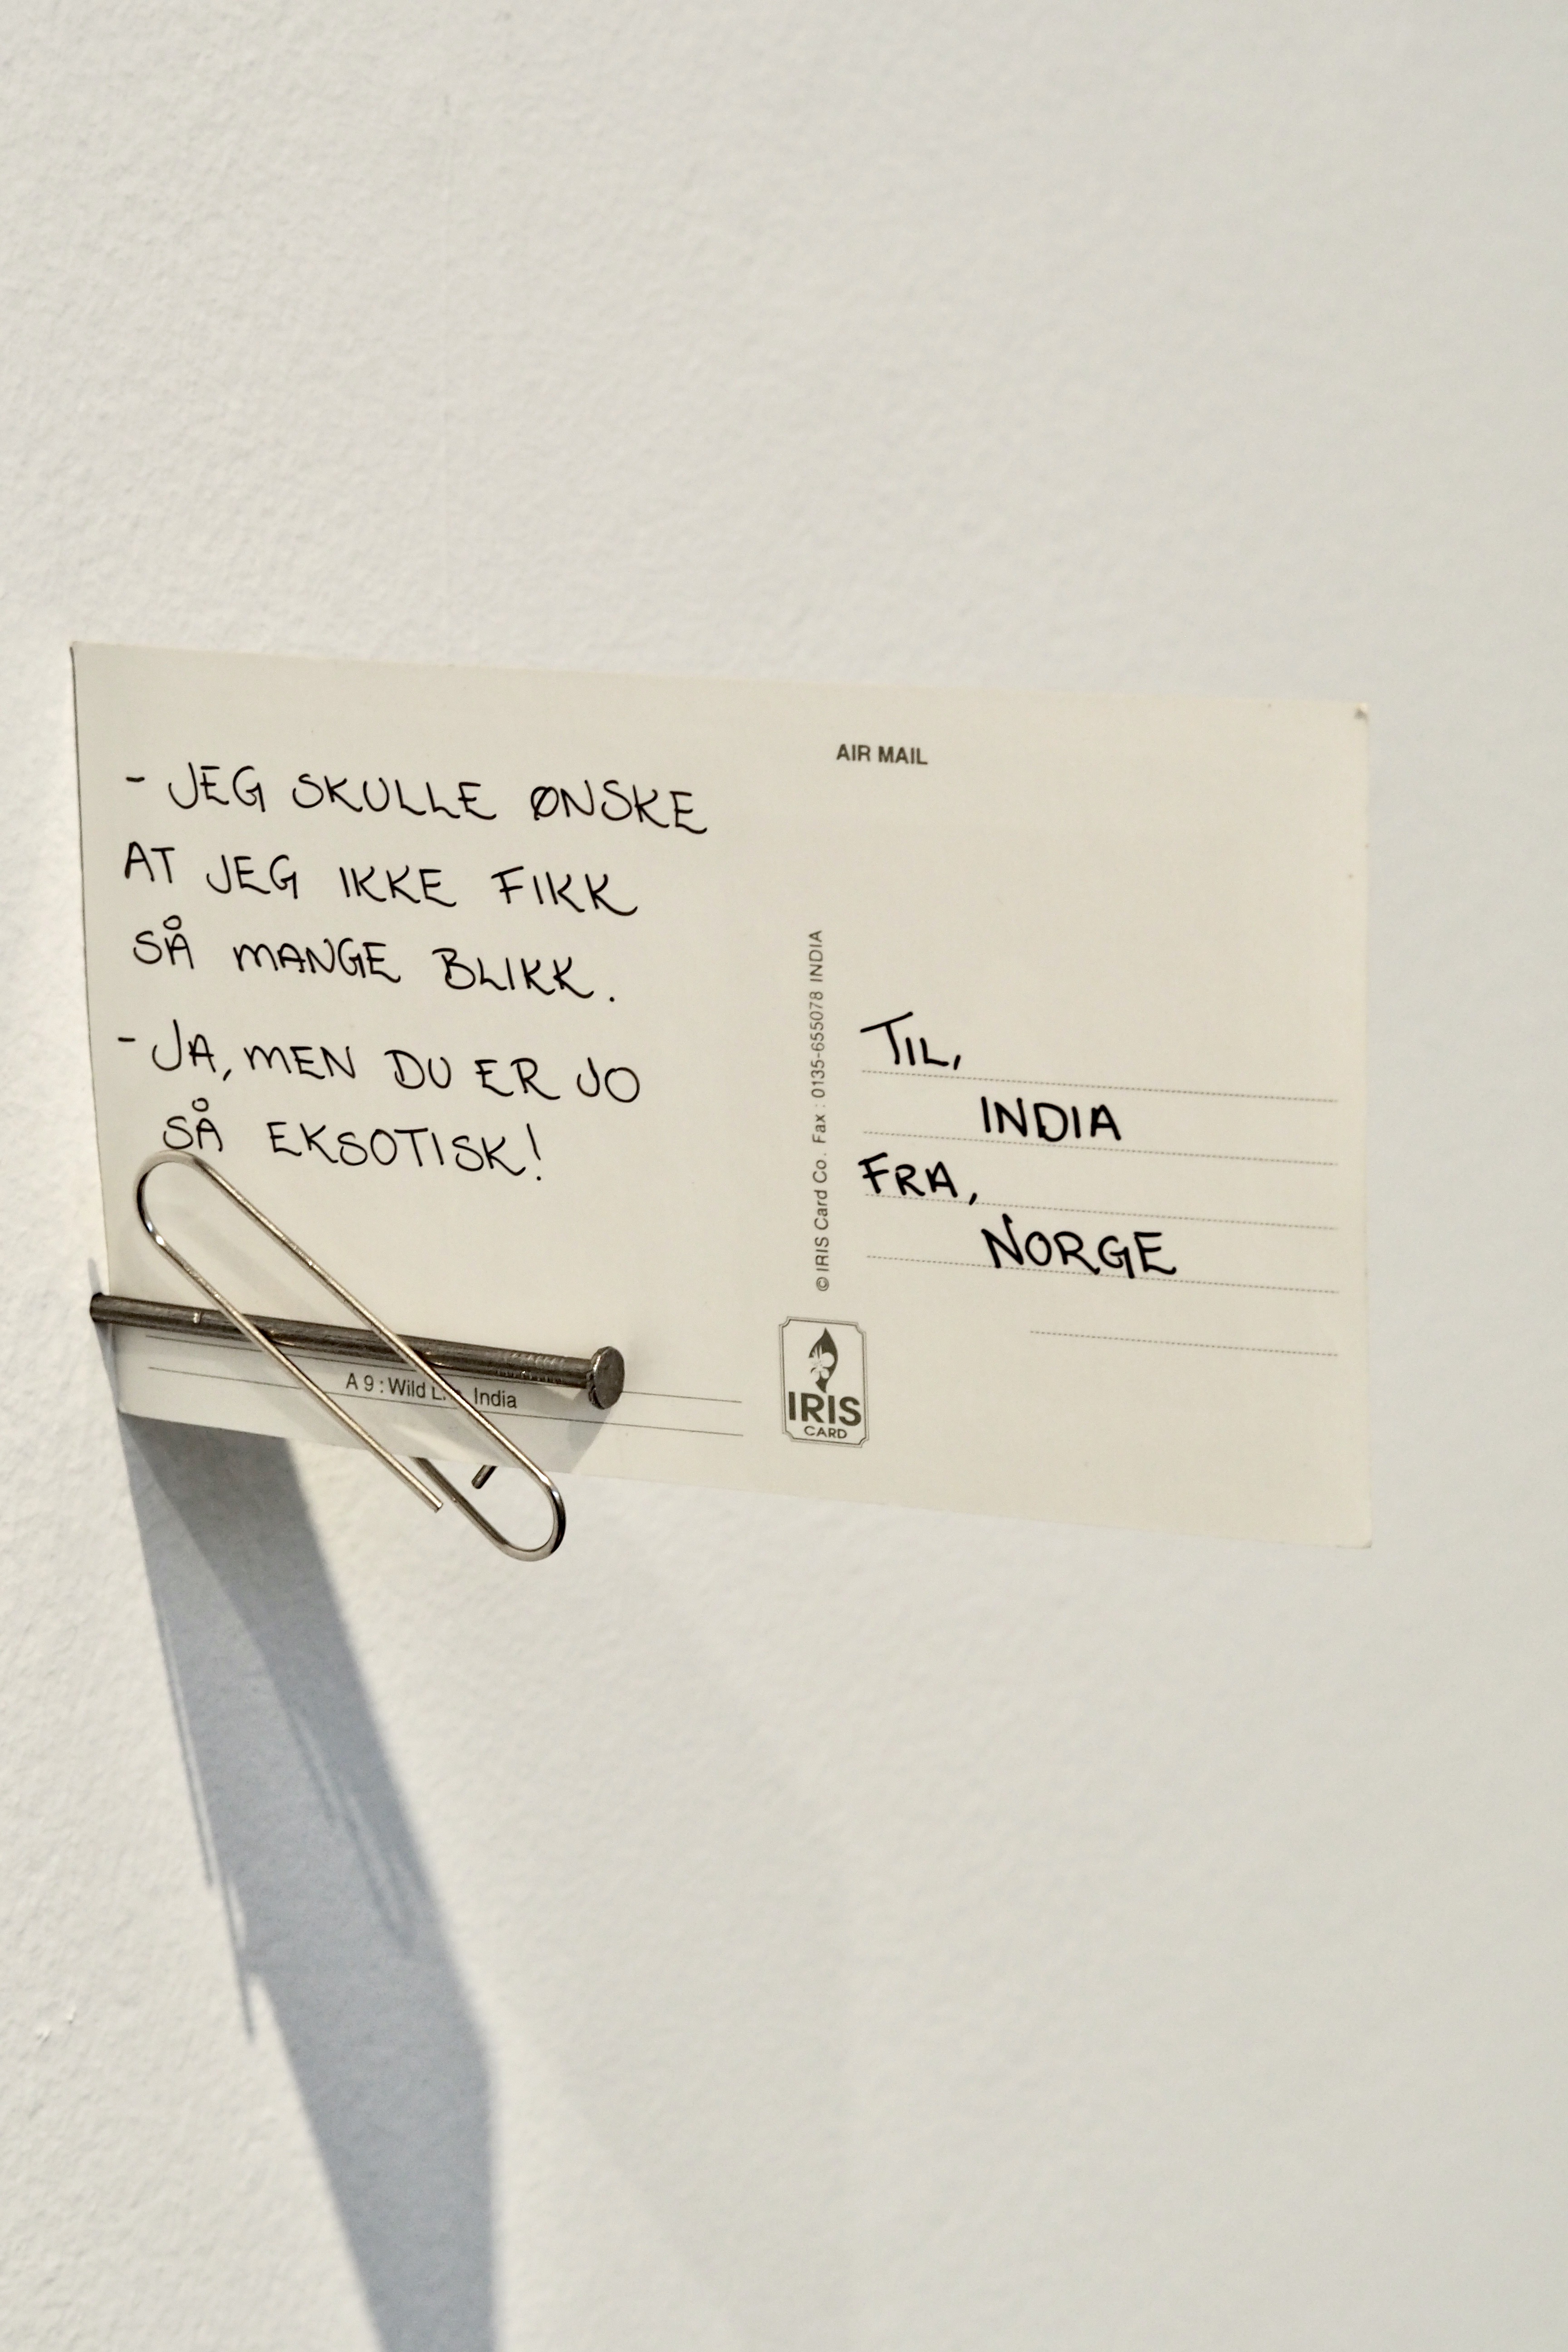 - JEG SKULLE ØNSKE
AT JEG IKKE FIKK
SÅ MANGE BLIKK.
- JA, MEN DU ER JO
SÅ EKSOTISK!
A 9 : Wild India
AIR MAIL
© IRIS Card Co. Fax : 0135-655078 INDIA
TIL,
INDIA
FRA,
NORGE
IRIS
CARD